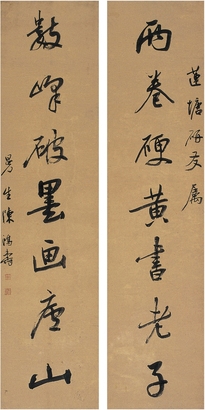 蓮塘研友属
两卷硬黄書老子
數峰破墨画庐山
曼生陳鴻壽